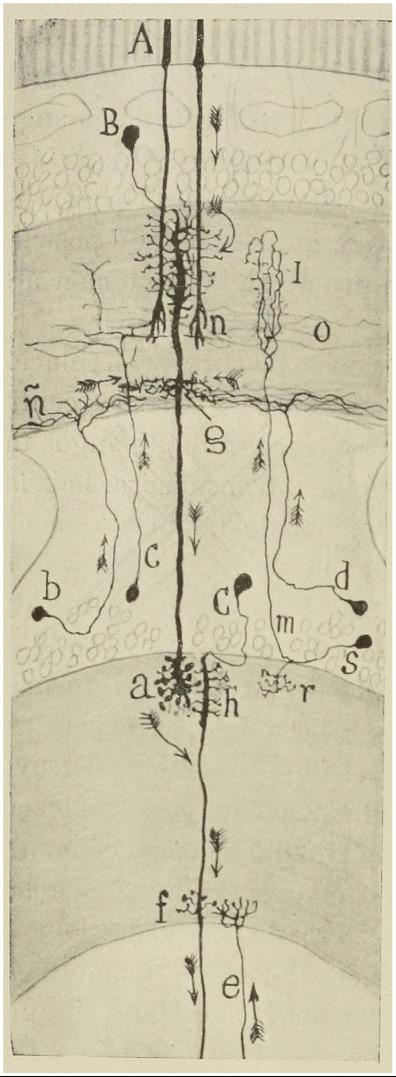 A
B
I
n
o
ñ
g
c
b
C
d
m
s
a
h
r
f
e